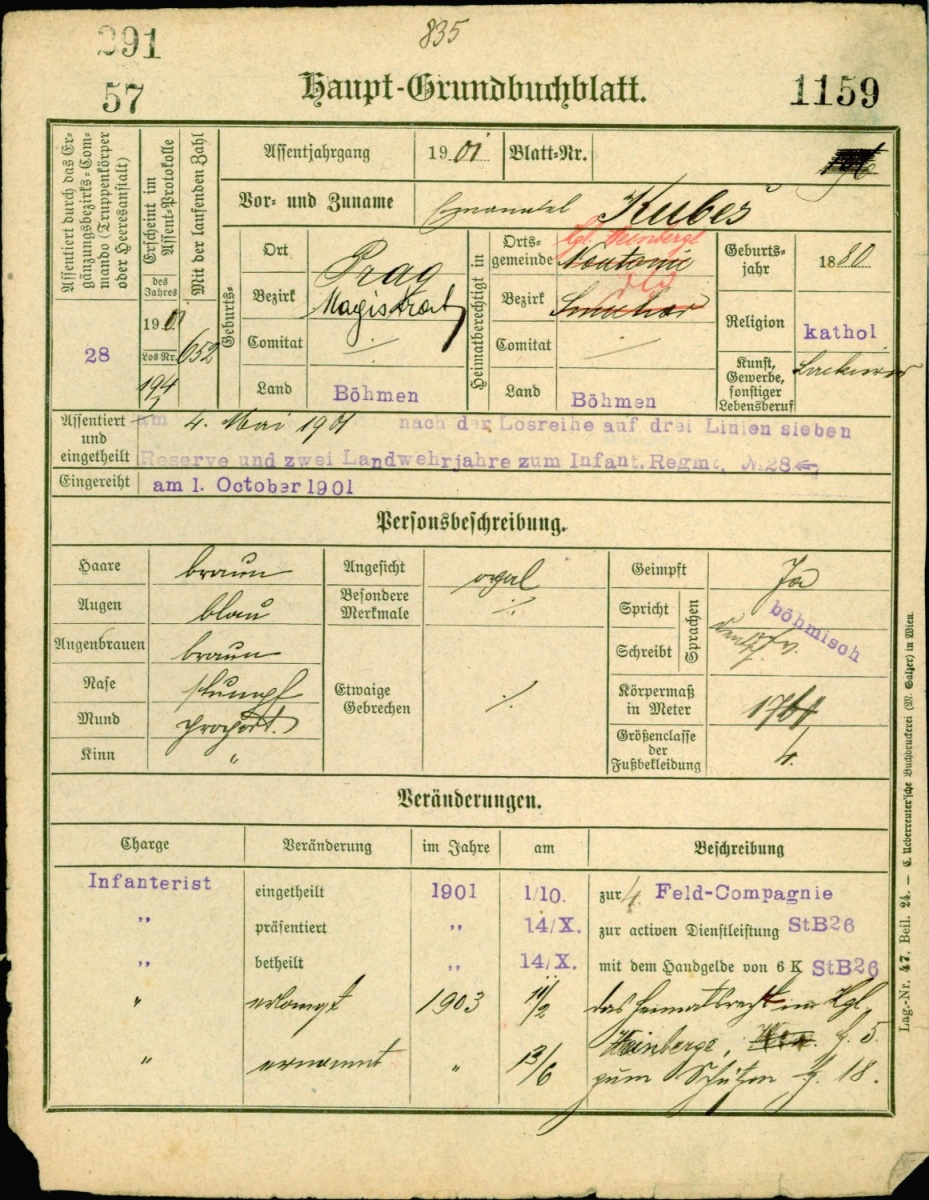 291
835
57
Haupt-Grundbuchblatt.
1159
Assentiert durch das Ergänzungsbezirks-Commando (Truppenkörper oder Heeresanstalt)
28
Erscheint im Assent-Protokolle
des Jahres
1901
Los Nr.
194
Mit der laufenden Zahl
652
Assentjahrgang 1901 Blatt-Nr.
Vor- und Zuname Emanuel Kubeš
Geburts-
Ort Prag
Bezirk Magistrat
Comitat ./.
Land Böhmen
Heimatberechtigt in
Ortsgemeinde Kgl. Weinberge
Bezirk Smichov
Comitat ./.
Land Böhmen
Geburtsjahr 1880
Religion kathol
Kunst, Gewerbe, sonstiger Lebensberuf Lackierer
Assentiert und eingetheilt
am 4. Mai 1901 nach der Losreihe auf drei Linien sieben
Reserve und zwei Landwehrjahre zum Infant. Regmt. № 28
Eingereiht am 1. October 1901
Personsbeschreibung.
Haare braun
Augen blau
Augenbrauen braun
Nase stumpf
Mund proport.
Kinn "
Angesicht oval
Besondere Merkmale ./.
Etwaige Gebrechen ./.
Geimpft Ja
Spricht
Schreibt
Sprachen
böhmisch
Körpermaß in Meter
Größenclasse der Fußbekleidung 4.
Veränderungen.
Charge Veränderung im Jahre am Beschreibung
Infanterist eingetheilt 1901 1/10. zur 4. Feld-Compagnie
" präsentiert " 14/X. zur activen Dienstleistung StB26
" betheilt " 14/X. mit dem Handgelde von 6 K StB26
" erlangt 1903 11/2 das Heimatsrecht in Kgl.
Weinberge, f. 5
" ernannt " 13/6 zum Schützen f. 18.
Lag.-Nr. 47. Beil. 24. — C. Ueberreuter'sche Buchdruckerei (M. Salzer) in Wien.